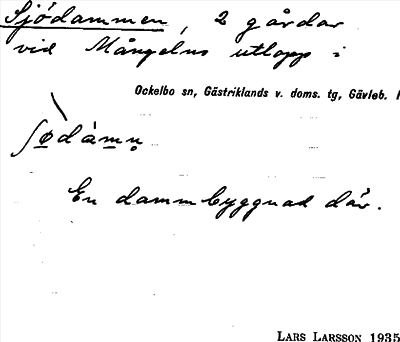 Sjödammen, 2 gårdar
vid Mångelns utlopp i
Ockelbo sn, Gästriklands v. doms. tg, Gävleb. l
ʃødàmn̥
En dammbyggnad där.
LARS LARSSON 1935